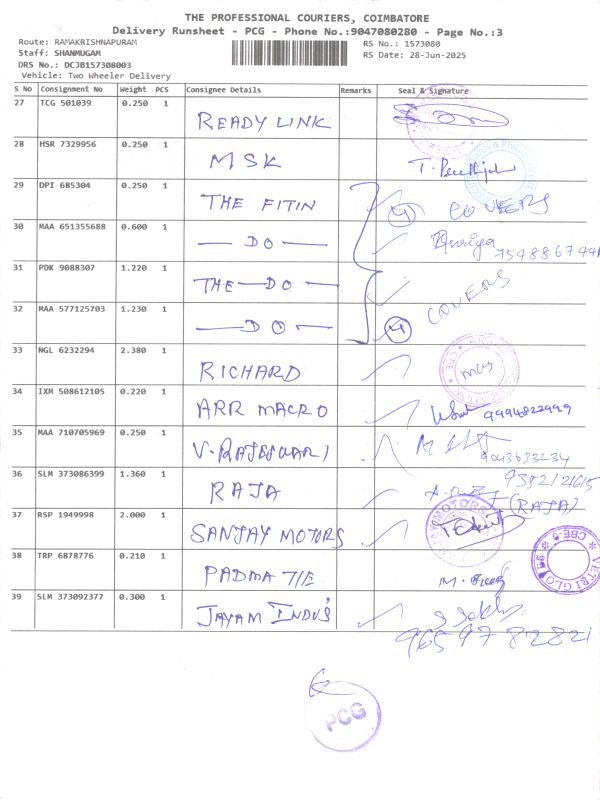 THE PROFESSIONAL COURIERS, COIMBATORE
Delivery Runsheet - PCG - Phone No.:9047080280 - Page No.:3
Route: RAMAKRISHNAPURAM
RS No.: 1573080
Staff: SHANMUGAM
RS Date: 28-Jun-2025
DRS No.: DCJB157308003
Vehicle: Two Wheeler Delivery
S No Consignment No Weight PCS Consignee Details Remarks Seal & Signature
27 TCG 501039 0.250 1 READY LINK
28 HSR 7329956 0.250 1 MSK
29 DPI 685304 0.250 1 THE FITIN 4 COVERS
30 MAA 651355688 0.600 1 — DO — 
31 PDK 9088307 1.220 1 THE — DO — COVERS
32 MAA 577125703 1.230 1 — DO — 4
33 NGL 6232294 2.380 1 RICHARD
34 IXM 508612105 0.220 1 ARR MACRO 9994822999
35 MAA 710705969 0.250 1 V. RAJESWARI
9382121615
36 SLM 373086399 1.360 1 RAJA (RAJA)
37 RSP 1949998 2.000 1 SANJAY MOTORS
38 TRP 6878776 0.210 1 PADMA TIE
39 SLM 373092377 0.300 1 JAYAM INDUS
9659782821
PCG